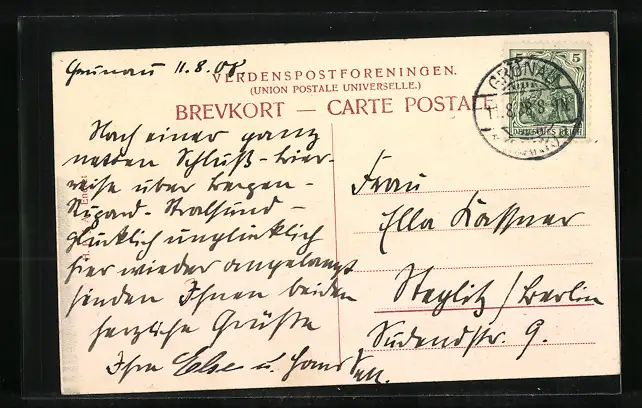 Grünau 11.8.08.
VERDENSPOSTFORENINGEN.
(UNION POSTALE UNIVERSELLE.)
BREVKORT — CARTE POSTALE
5
GRÜNAU
DEUTSCHES REICH
Nach einer ganz
netten Schluß-bier-
reise über Bergen-
Stralsund -
glücklich unglücklich
hier wieder angelangt
senden Ihnen beiden
herzliche Grüße
Ihre Else u. Hans
Frau
Ella Kassner
Steglitz / Berlin
Südendstr. 9.